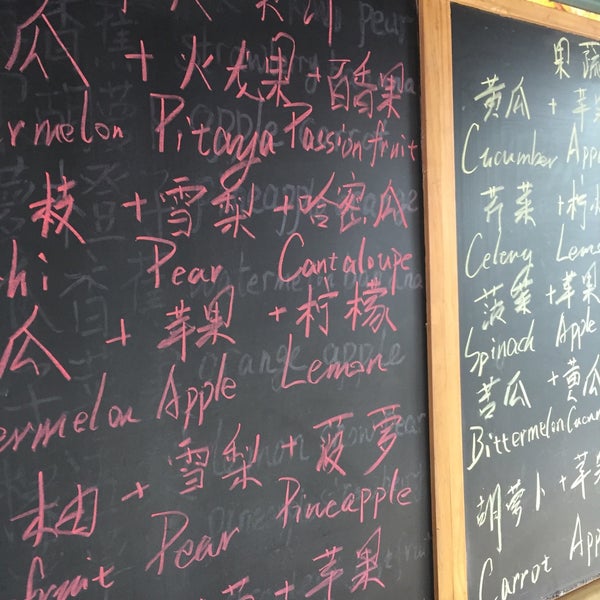 瓜 + 火龙果 + 百香果
ermelon Pitaya Passionfruit
枝 + 雪梨 + 哈密瓜
hi Pear Cantaloupe
瓜 + 苹果 + 柠檬
ermelon Apple Lemon
柚 + 雪梨 + 菠萝
fruit Pear Pineapple
+ 苹果
果蔬
黄瓜 + 苹果
Cucumber Apple
芹菜 + 柠
Celery Lemo
菠菜 + 苹果
Spinach Apple
苦瓜 + 黄瓜
Bittermelon Cucum
胡萝卜 + 苹
Carrot App